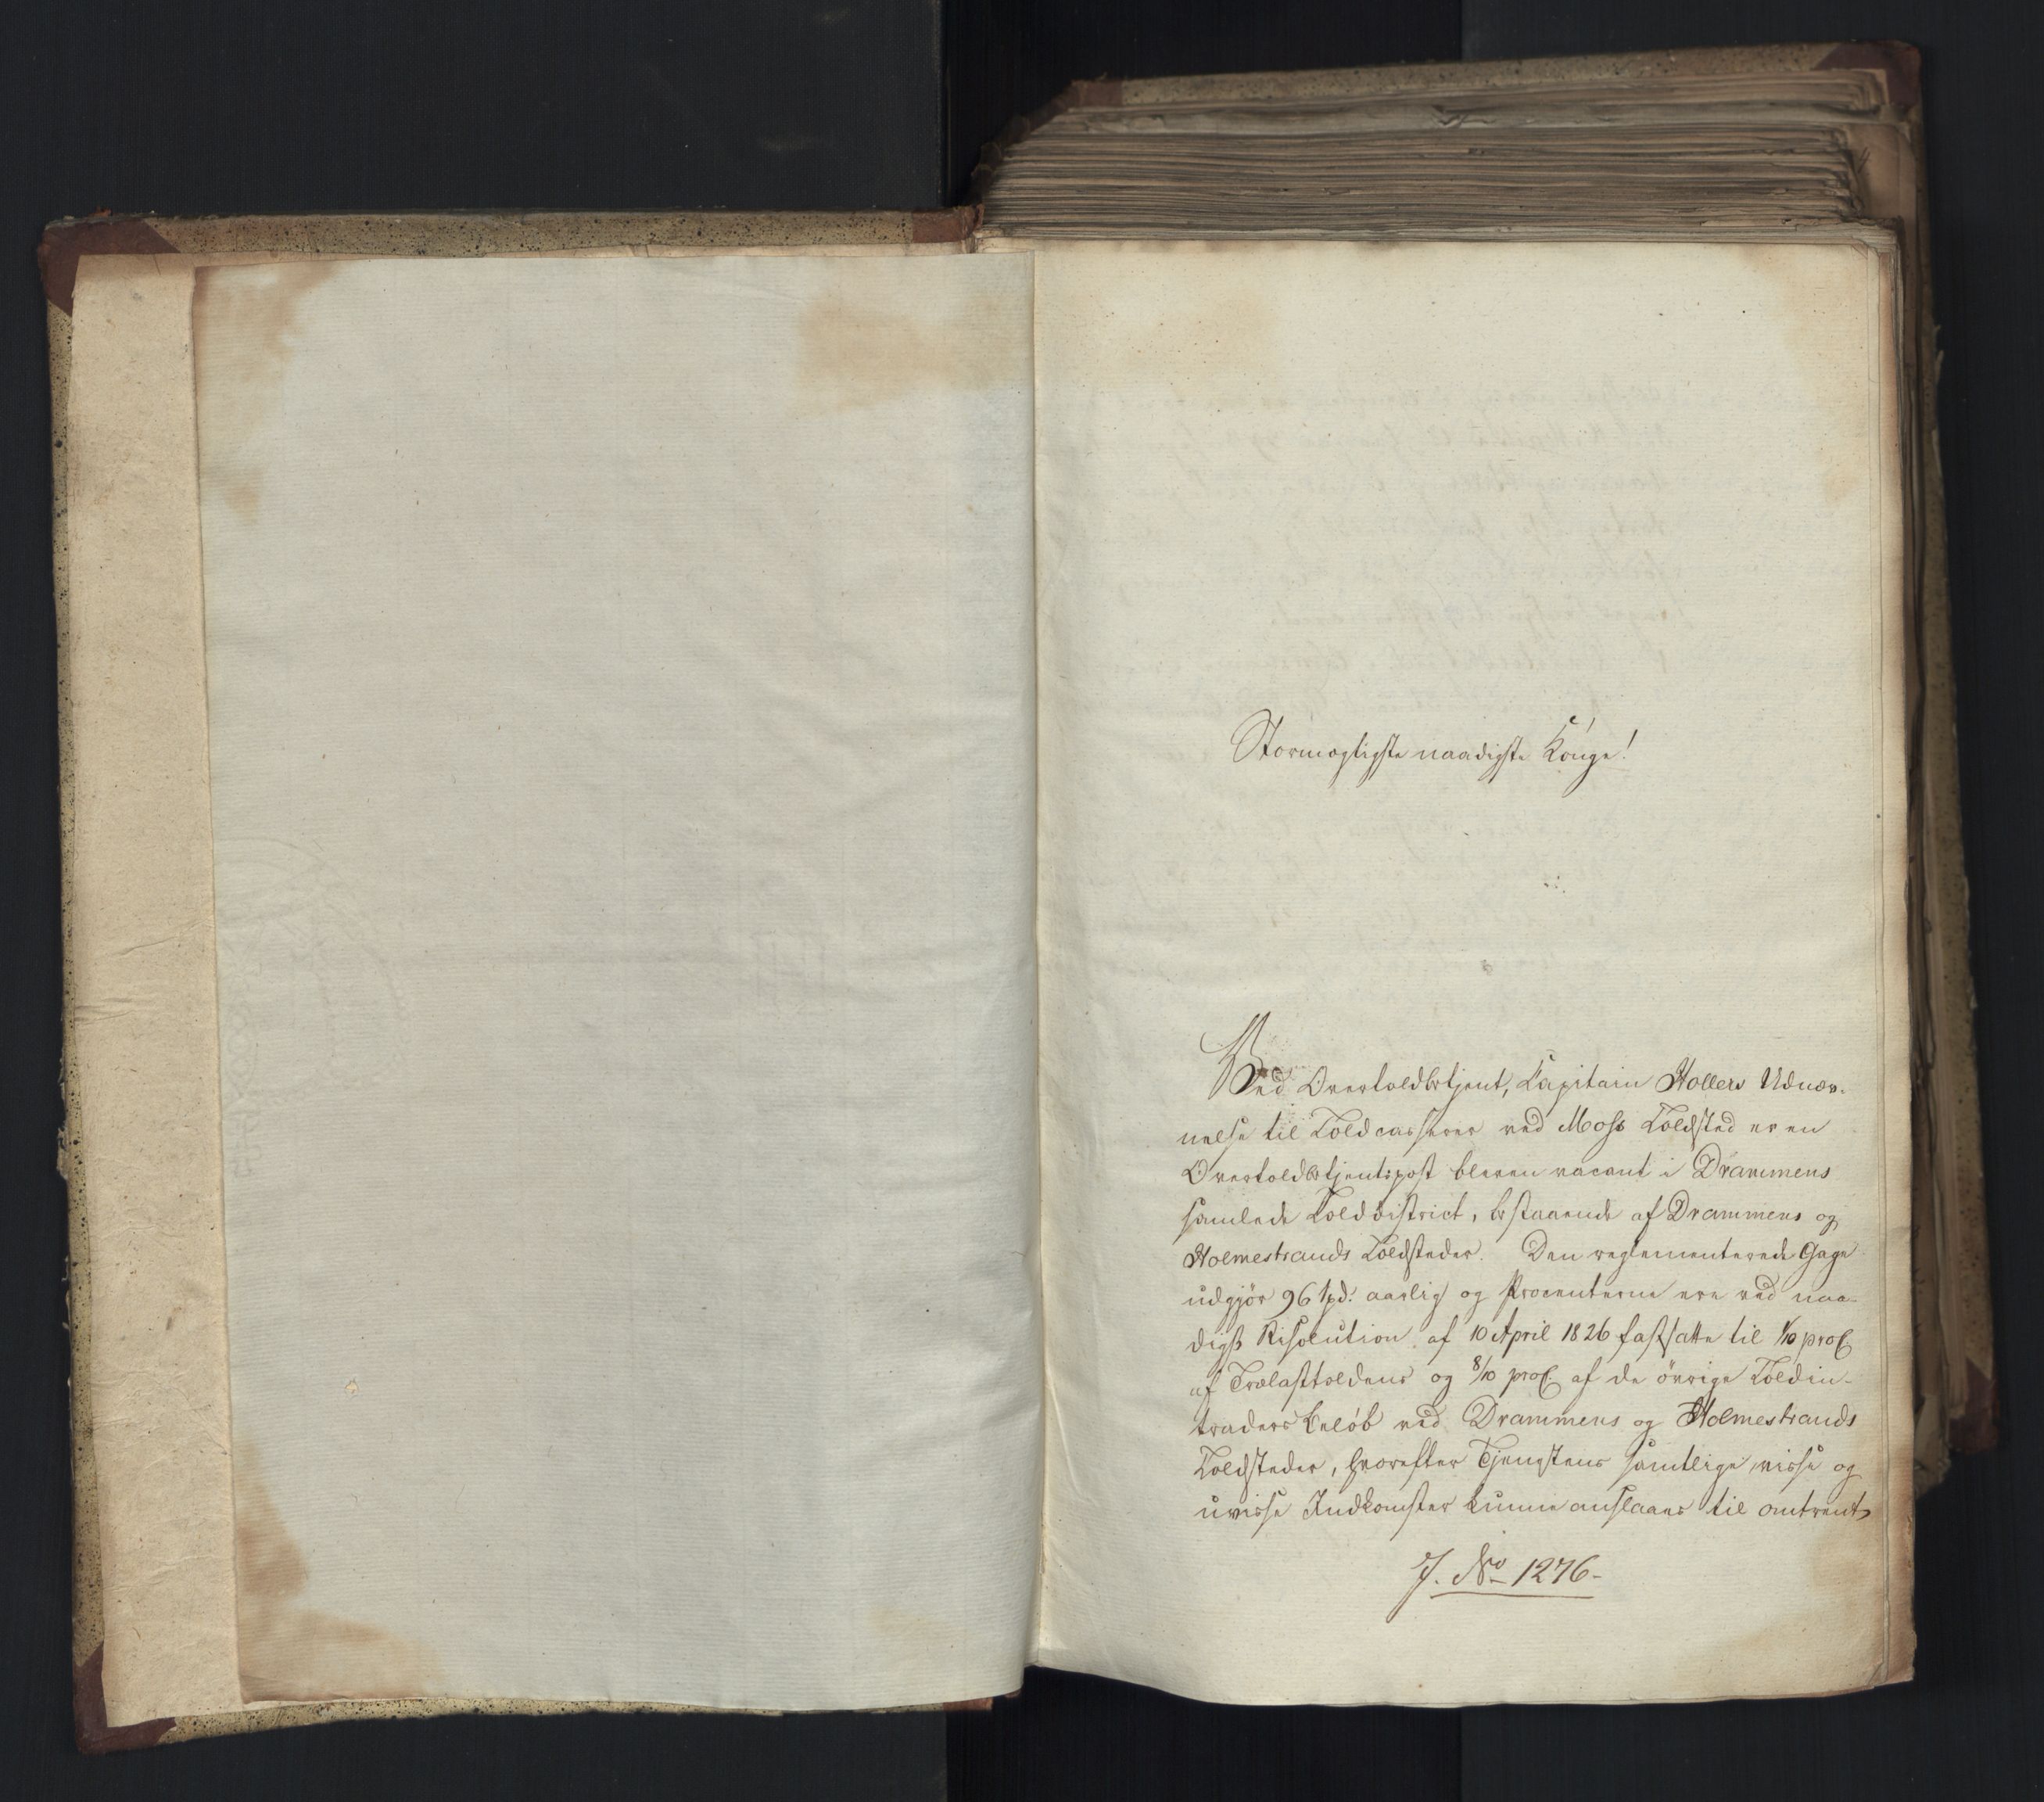 Stormægtigste naadigste Konge!
Ved Overtoldbetjent, Capitain Hollers Udnæv-
nelse til Toldcasserer ved Moss Toldsted er en
Overtoldbetjentspost bleven vacant i Drammens
samlede Tolddistrict, bestaaende af Drammens og
Holmestrands Toldsteder. Den reglementerede Gage
udgjör 96 Spd: aarlig og Procenterne ere ved naa-
digst Resolution af 10 April 1826 fastsatte til 1/10 proC.
af Trælasttoldens og 8/10 proC. af de övrige Toldin-
traders Belöb ved Drammens og Holmestrands
Toldsteder, hvorefter Tjenestens samtlige visse og
uvisse Indkomster kunne anslaaes til omtrent
J. No 1276-